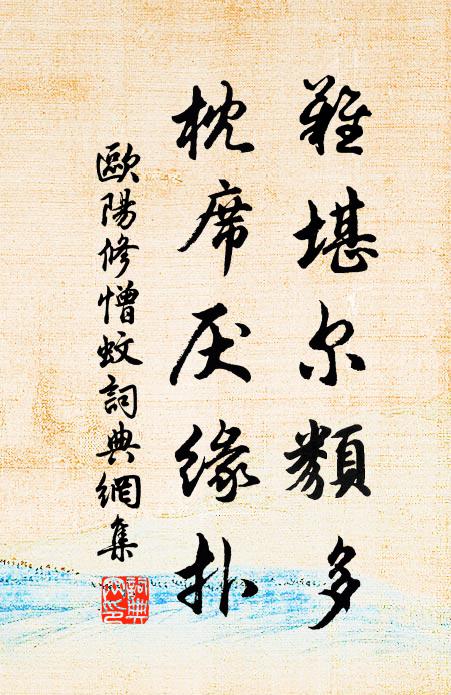 難堪尔類多
枕席厌緣扑
歐陽修憎蚊詞典網集